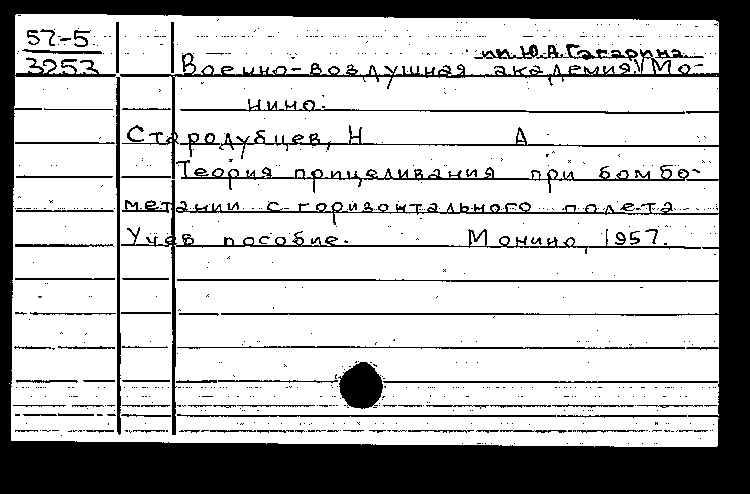 57-5
3253
им. Ю.А. Гагарина
Военно-воздушная академия. Мо-
нино.
Стародубцев, Н А
Теория прицеливания при бомбо-
метании с горизонтального полета
Учеб пособие. Монино, 1957.